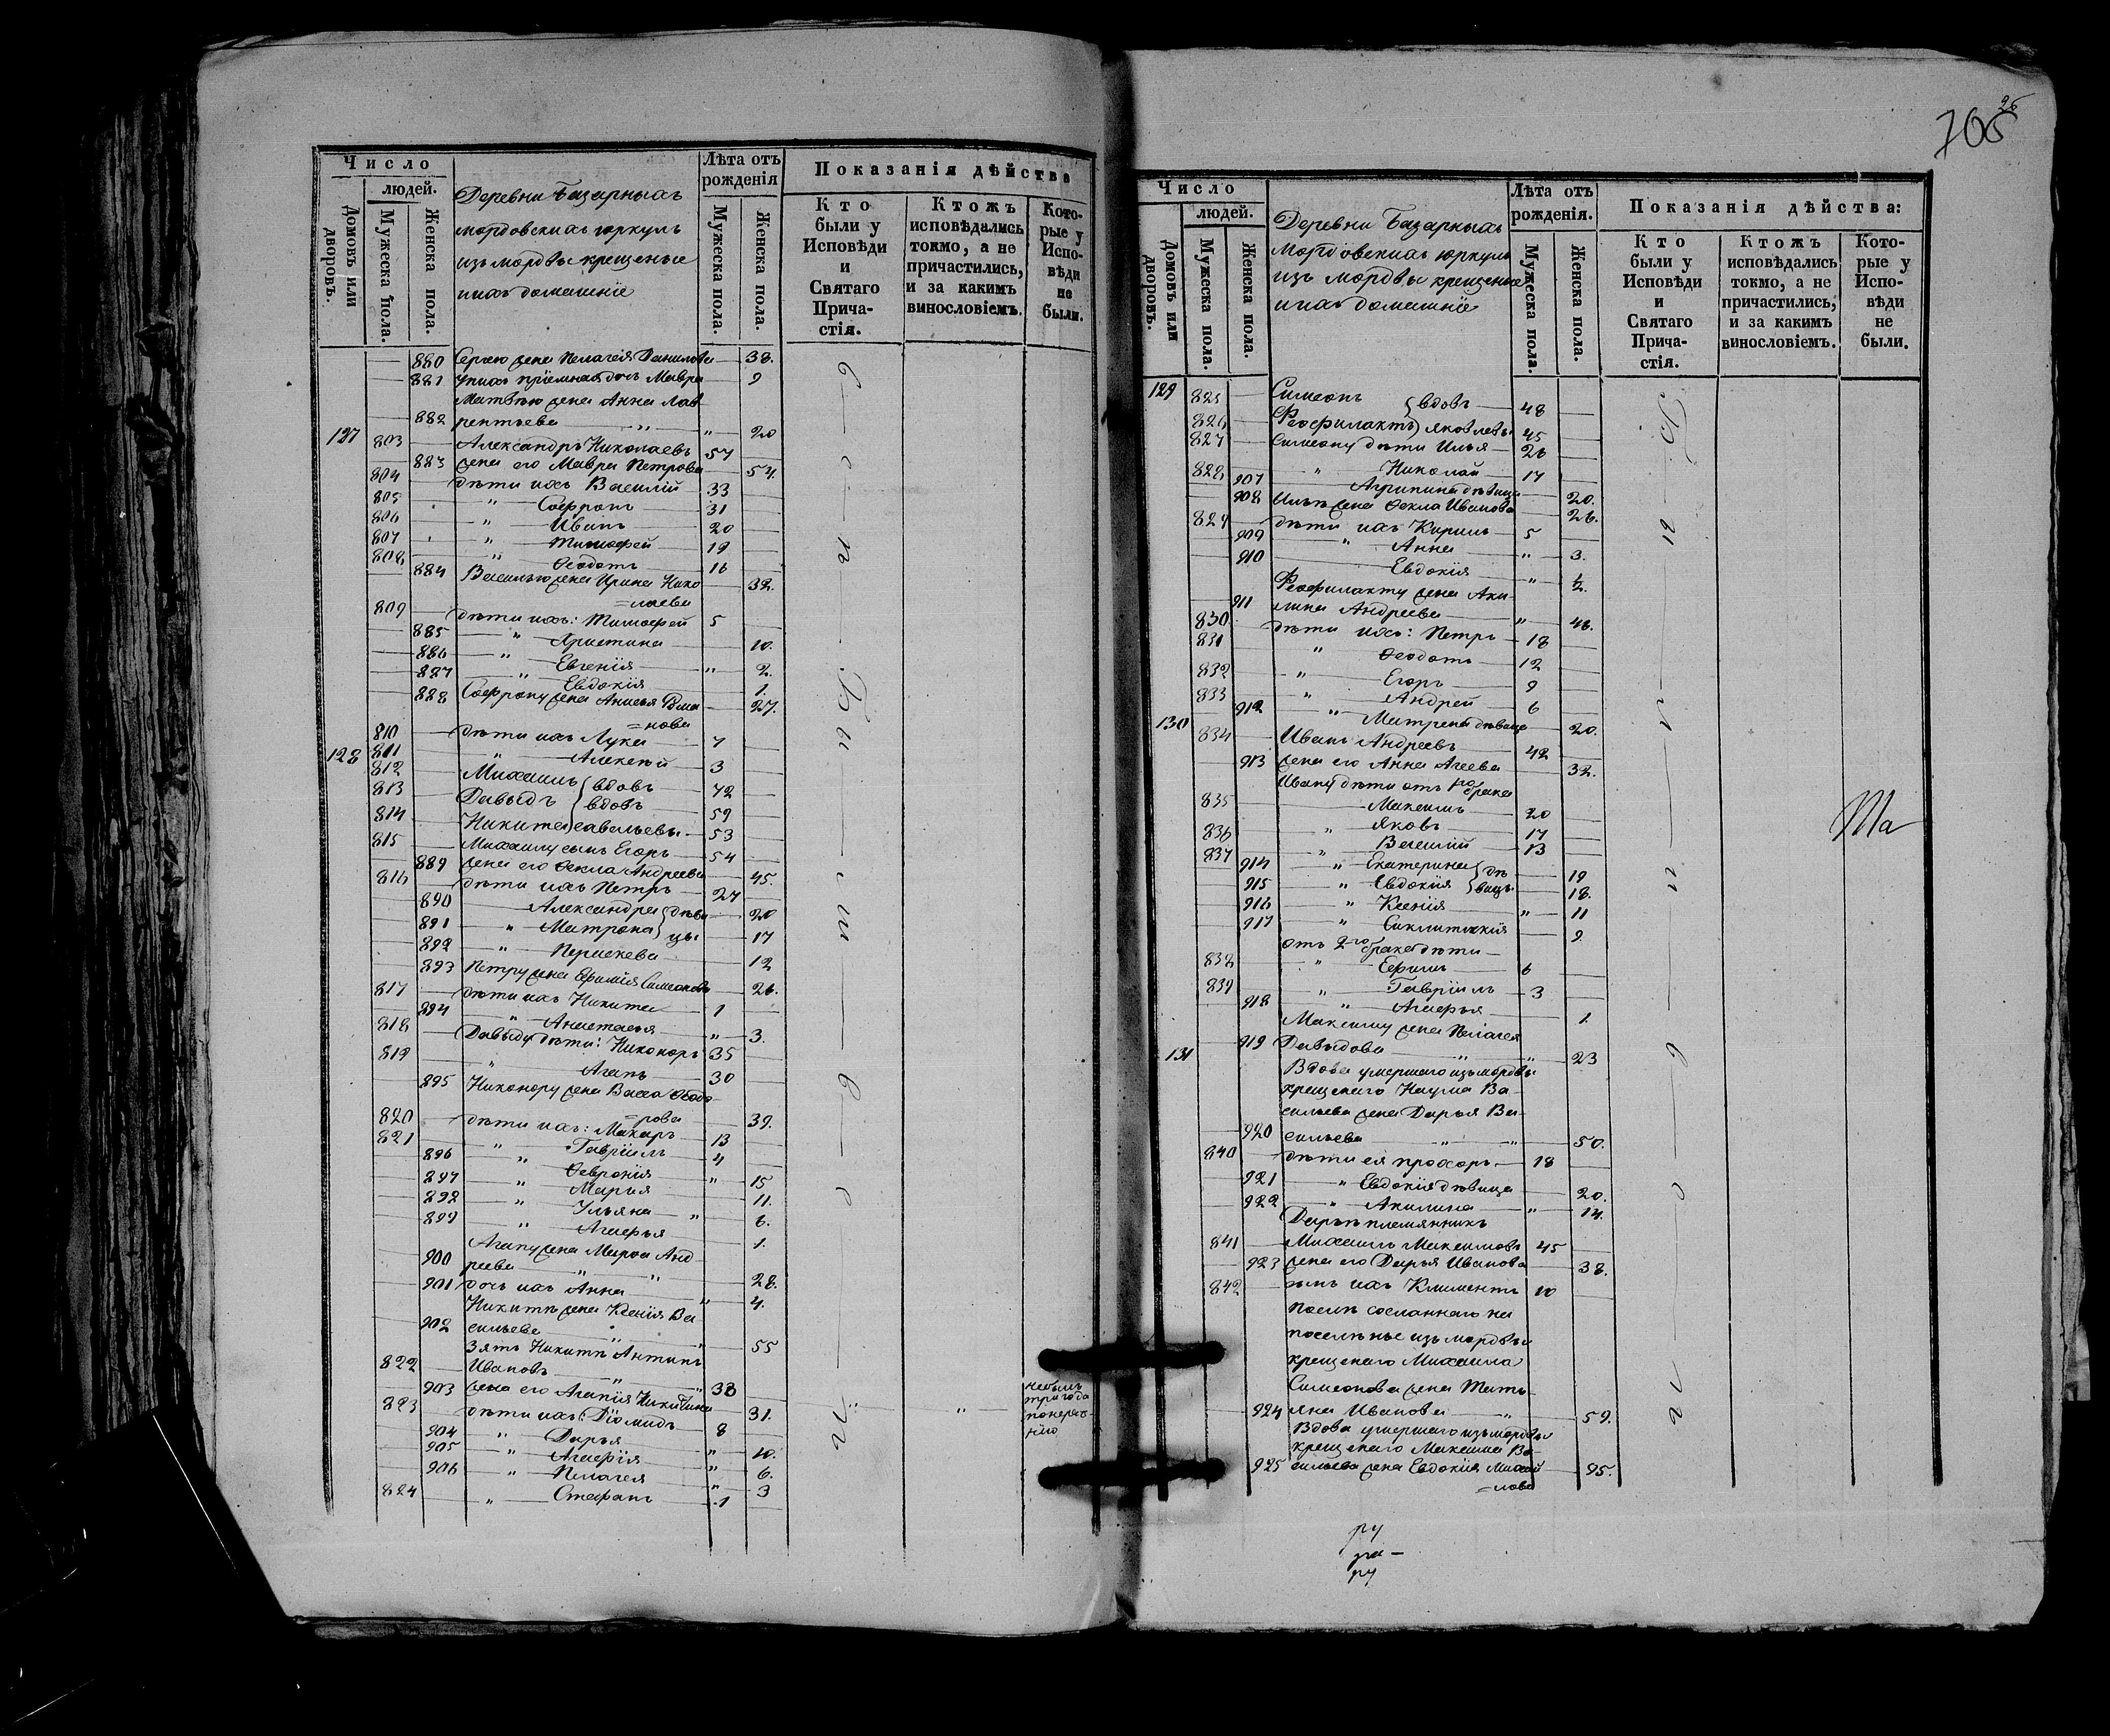 Число
людей.
Домовъ или дворовъ.
Мужеска пола.
Женска пола.
Деревни Базарныхъ
мордовскихъ юркуль
изъ мордвы крещеные
и ихъ домашніе
Лѣта отъ рожденія
Мужеска пола.
Женска пола.
Показанія дѣйства
Кто были у Исповѣди и Святаго Причастія.
Ктожъ исповѣдались токмо, а не причастились, и за какимъ винословіемъ.
Которые у Исповѣди не были.
880 Сергею жена Пелагея Данилова 38.
881 у нихъ пріемная дочь Мавра 9
Матвѣю жена Анна Лав
882 рентьева " " 20
127 803 Александръ Николаевъ 57
883 жена его Мавра Петрова 54.
804 дѣти ихъ Василій 33
805 " Софронъ 31
806 " Иванъ 20
807 " Тимофей 19
808 " Ѳеодотъ 16
884 Василью жена Ирина Нико 32.
=лаева
809 дѣти ихъ: Тимофей 5
885 " Христина 10.
886 " Евгенія " 2.
887 " Евдокія 1.
888 Софрону жена Анисья Рома 27.
=нова
810 дѣти ихъ Лука 7
811 " Алексѣй 3
128 812 Михаилъ вдовъ 72
813 Давыдъ вдовъ 59
814 Никита савельевы 53
815 Михаилу сынъ Егоръ 54
889 жена его Ѳекла Андреева 45.
816 дѣти ихъ Петръ 27
890 Александра дѣви 20
891 " Матрона цы 17
892 " Параскева 12
893 Петру жена Ефимія Симеонова 26.
817 дѣти ихъ Никита 1
894 " Анастасья " 3.
818 Давыду дѣти: Никоноръ 35
819 " Агапъ 30
895 Никонору жена Васса Ѳедо
=рова 39.
820 дѣти ихъ: Макаръ 13
821 " Гавріилъ 4
896 " Февронія " 15
897 " Марья 11.
898 " Ульяна " 6.
899 " Агафья 1.
Агапу жена Марѳа Анд
900 реева " " 28.
901 дочь ихъ Анна " 4.
Никитѣ жена Ксенія Ва
902 сильева " " 55
Зять Никитѣ Антипъ
822 Ивановъ " " 33
903 жена его Агапія Никитина 31.
823 дѣти ихъ: Діомидъ 8
904 " Дарья " 10.
905 " Агафія " 6.
906 " Пелагея " 3
824 " Стефанъ 1
небылъ
три года
понерас
нію
705
26
Число
людей.
Домовъ или дворовъ.
Мужеска пола.
Женска пола.
Деревни Базарныхъ
Мордовскихъ юркуль
изъ мордвы крещеные
и ихъ домашніе
Лѣта отъ рожденія.
Мужеска пола.
Женска пола.
Показанія дѣйства:
Кто были у Исповѣди и Святаго Причастія.
Ктожъ исповѣдались токмо, а не причастились, и за какимъ винословіемъ.
Которые у Исповѣди не были.
129 825 Симеонъ вдовъ 48
826 Феофилактъ яковлевы 45
827 Симеону дѣти Илья 26
828 " Николай 17
907 Агрипина дѣвица 20.
908 Ильѣ жена Ѳекла Иванова 26.
829 дѣти ихъ Кирилъ 5
909 " Анна " 3.
910 Евдокія " ½.
Феофилакту жена Аки
911 лина Андреева " 46.
830 дѣти ихъ: Петръ 18
831 " Ѳеодотъ 12
832 " Егоръ 9
833 " Андрей 6
912 " Матрена дѣвица 20.
130 834 Иванъ Андреевъ 42
913 жена его Анна Агеева 32.
Ивану дѣти отъ 1го брака
835 Максимъ 20
836 " Яковъ 17
837 " Василій 13
914 " Екатерина дѣ 19
915 " Евдокія вицы 18.
916 " Ксенія " 11
917 " Синклитикія 9.
отъ 2го брака дѣти
838 " Ефимъ 6
839 " Гавріилъ 3
918 " Агафья 1.
Максиму жена Пелагея
919 Давыдова " " 23
131 Вдова умершаго изъ мордвы
крещенаго Наума Ва
сильева жена Дарья Ва
920 сильева " " 50.
840 дѣти ея прохоръ 18
921 " Евдокія дѣвица 20.
922 " Акилина " 14.
Дарьѣ племянникъ
841 Михаилъ Максимовъ 45
923 жена его Дарья Иванова 38.
842 сынъ ихъ Климентъ 10
послѣ сосланнаго на
поселѣнье изъ мордвы
крещенаго Михаила
Симеонова жена Тать
924 яна Иванова " 59.
Вдова умершаго изъ мордвы
крещенаго Максима Ва
925 сильева жена Евдокія Михай 95.
=лова
Та
ру
ра
ру